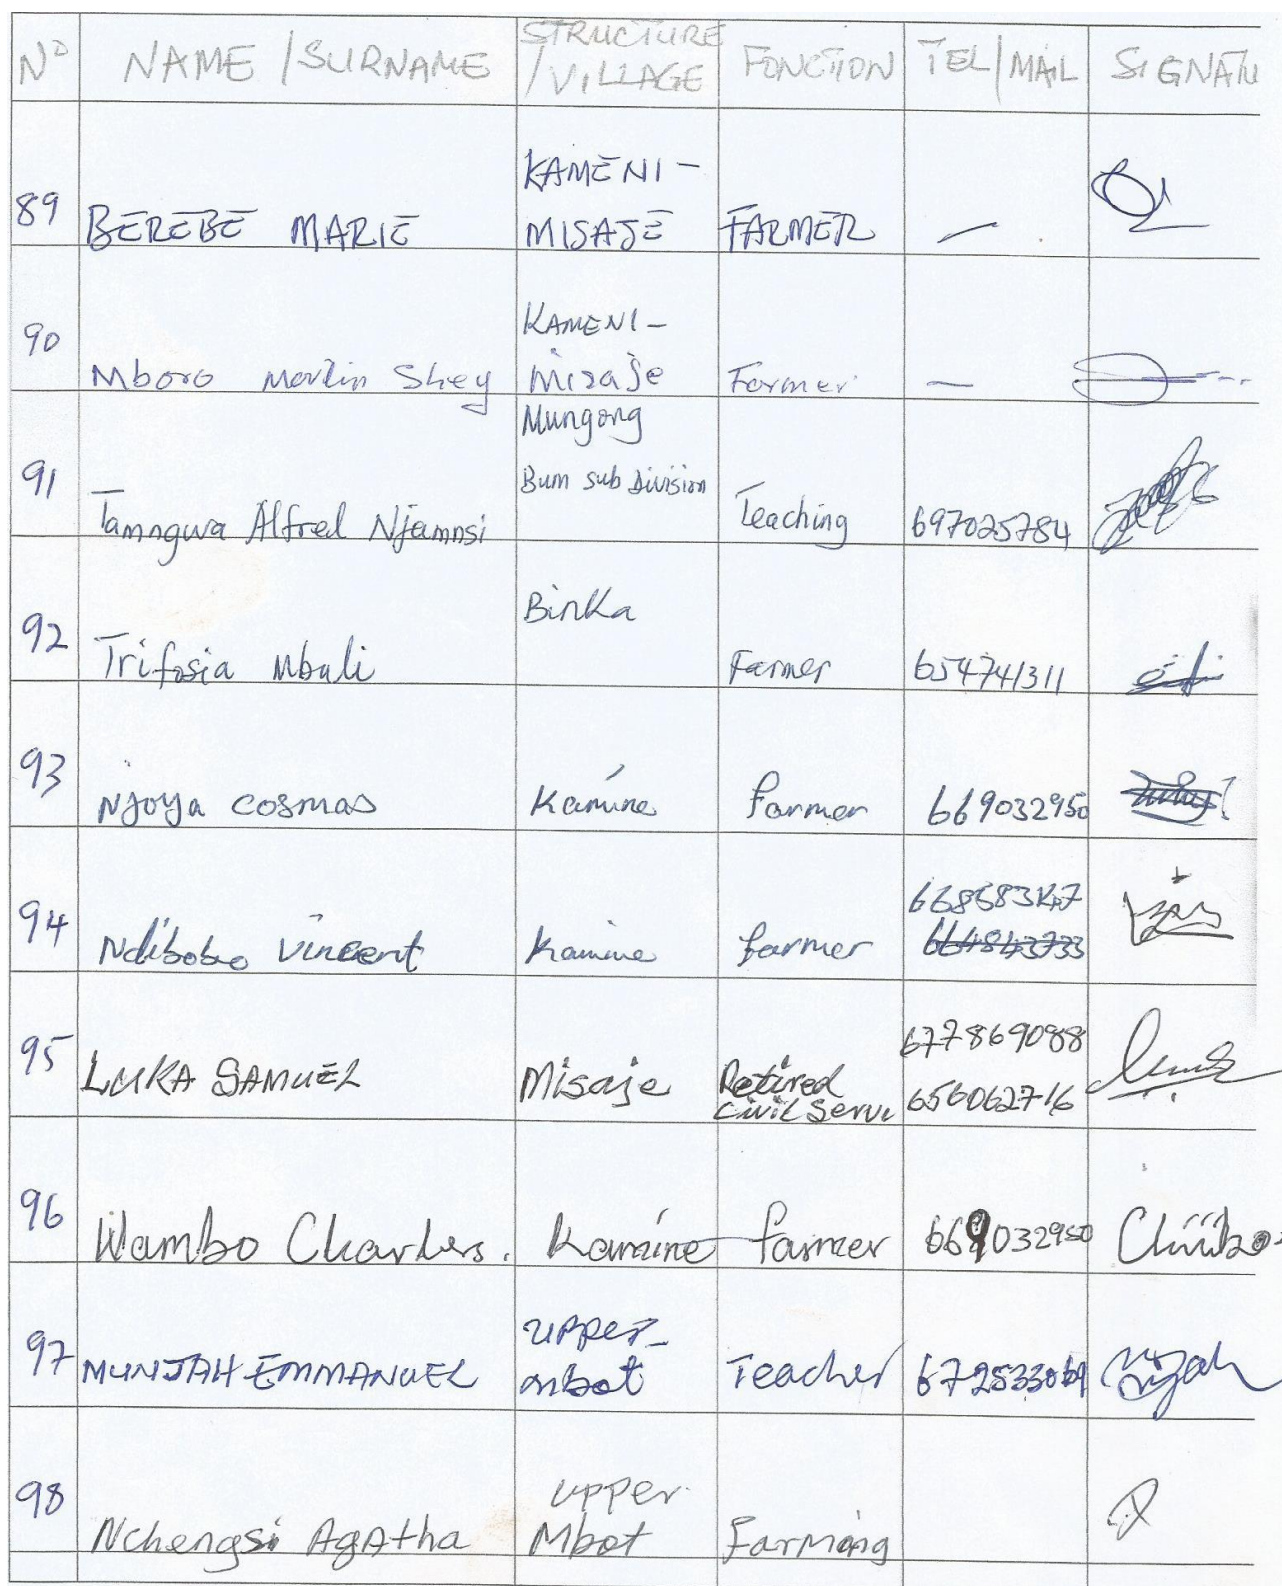 N° NAME / SURNAME STRUCTURE / VILLAGE FONCTION TEL / MAIL SIGNATU
89 BEREBE MARIE KAMENI - MISAJE FARMER —
90 Mboro Shey KAMENI - Misaje Farmer —
91 Tamngwa Alfred Njamnsi Mungong Bum sub Division Teaching 697025784
92 Trifosia Mbuli Binka Farmer 654741311
93 Njoya Cosmas Kamine farmer 669032950
94 Vincent Kamine farmer
95 LUKA SAMUEL Misaje Retired Civil Serv 677869088 656062716
96 Wambo Charles. Kamine farmer 669032950
97 MUNJAH EMMANUEL upper- mbot Teacher 672533069
98 Nchengsi AgAtha upper Mbot Farming